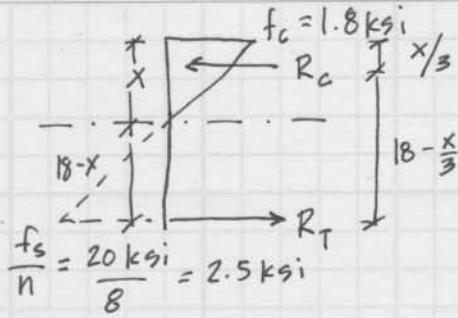 f_c = 1.8 ksi
x
R_c
x/3
18-x
18 - x/3
R_T
f_s/n = 20 ksi/8 = 2.5 ksi